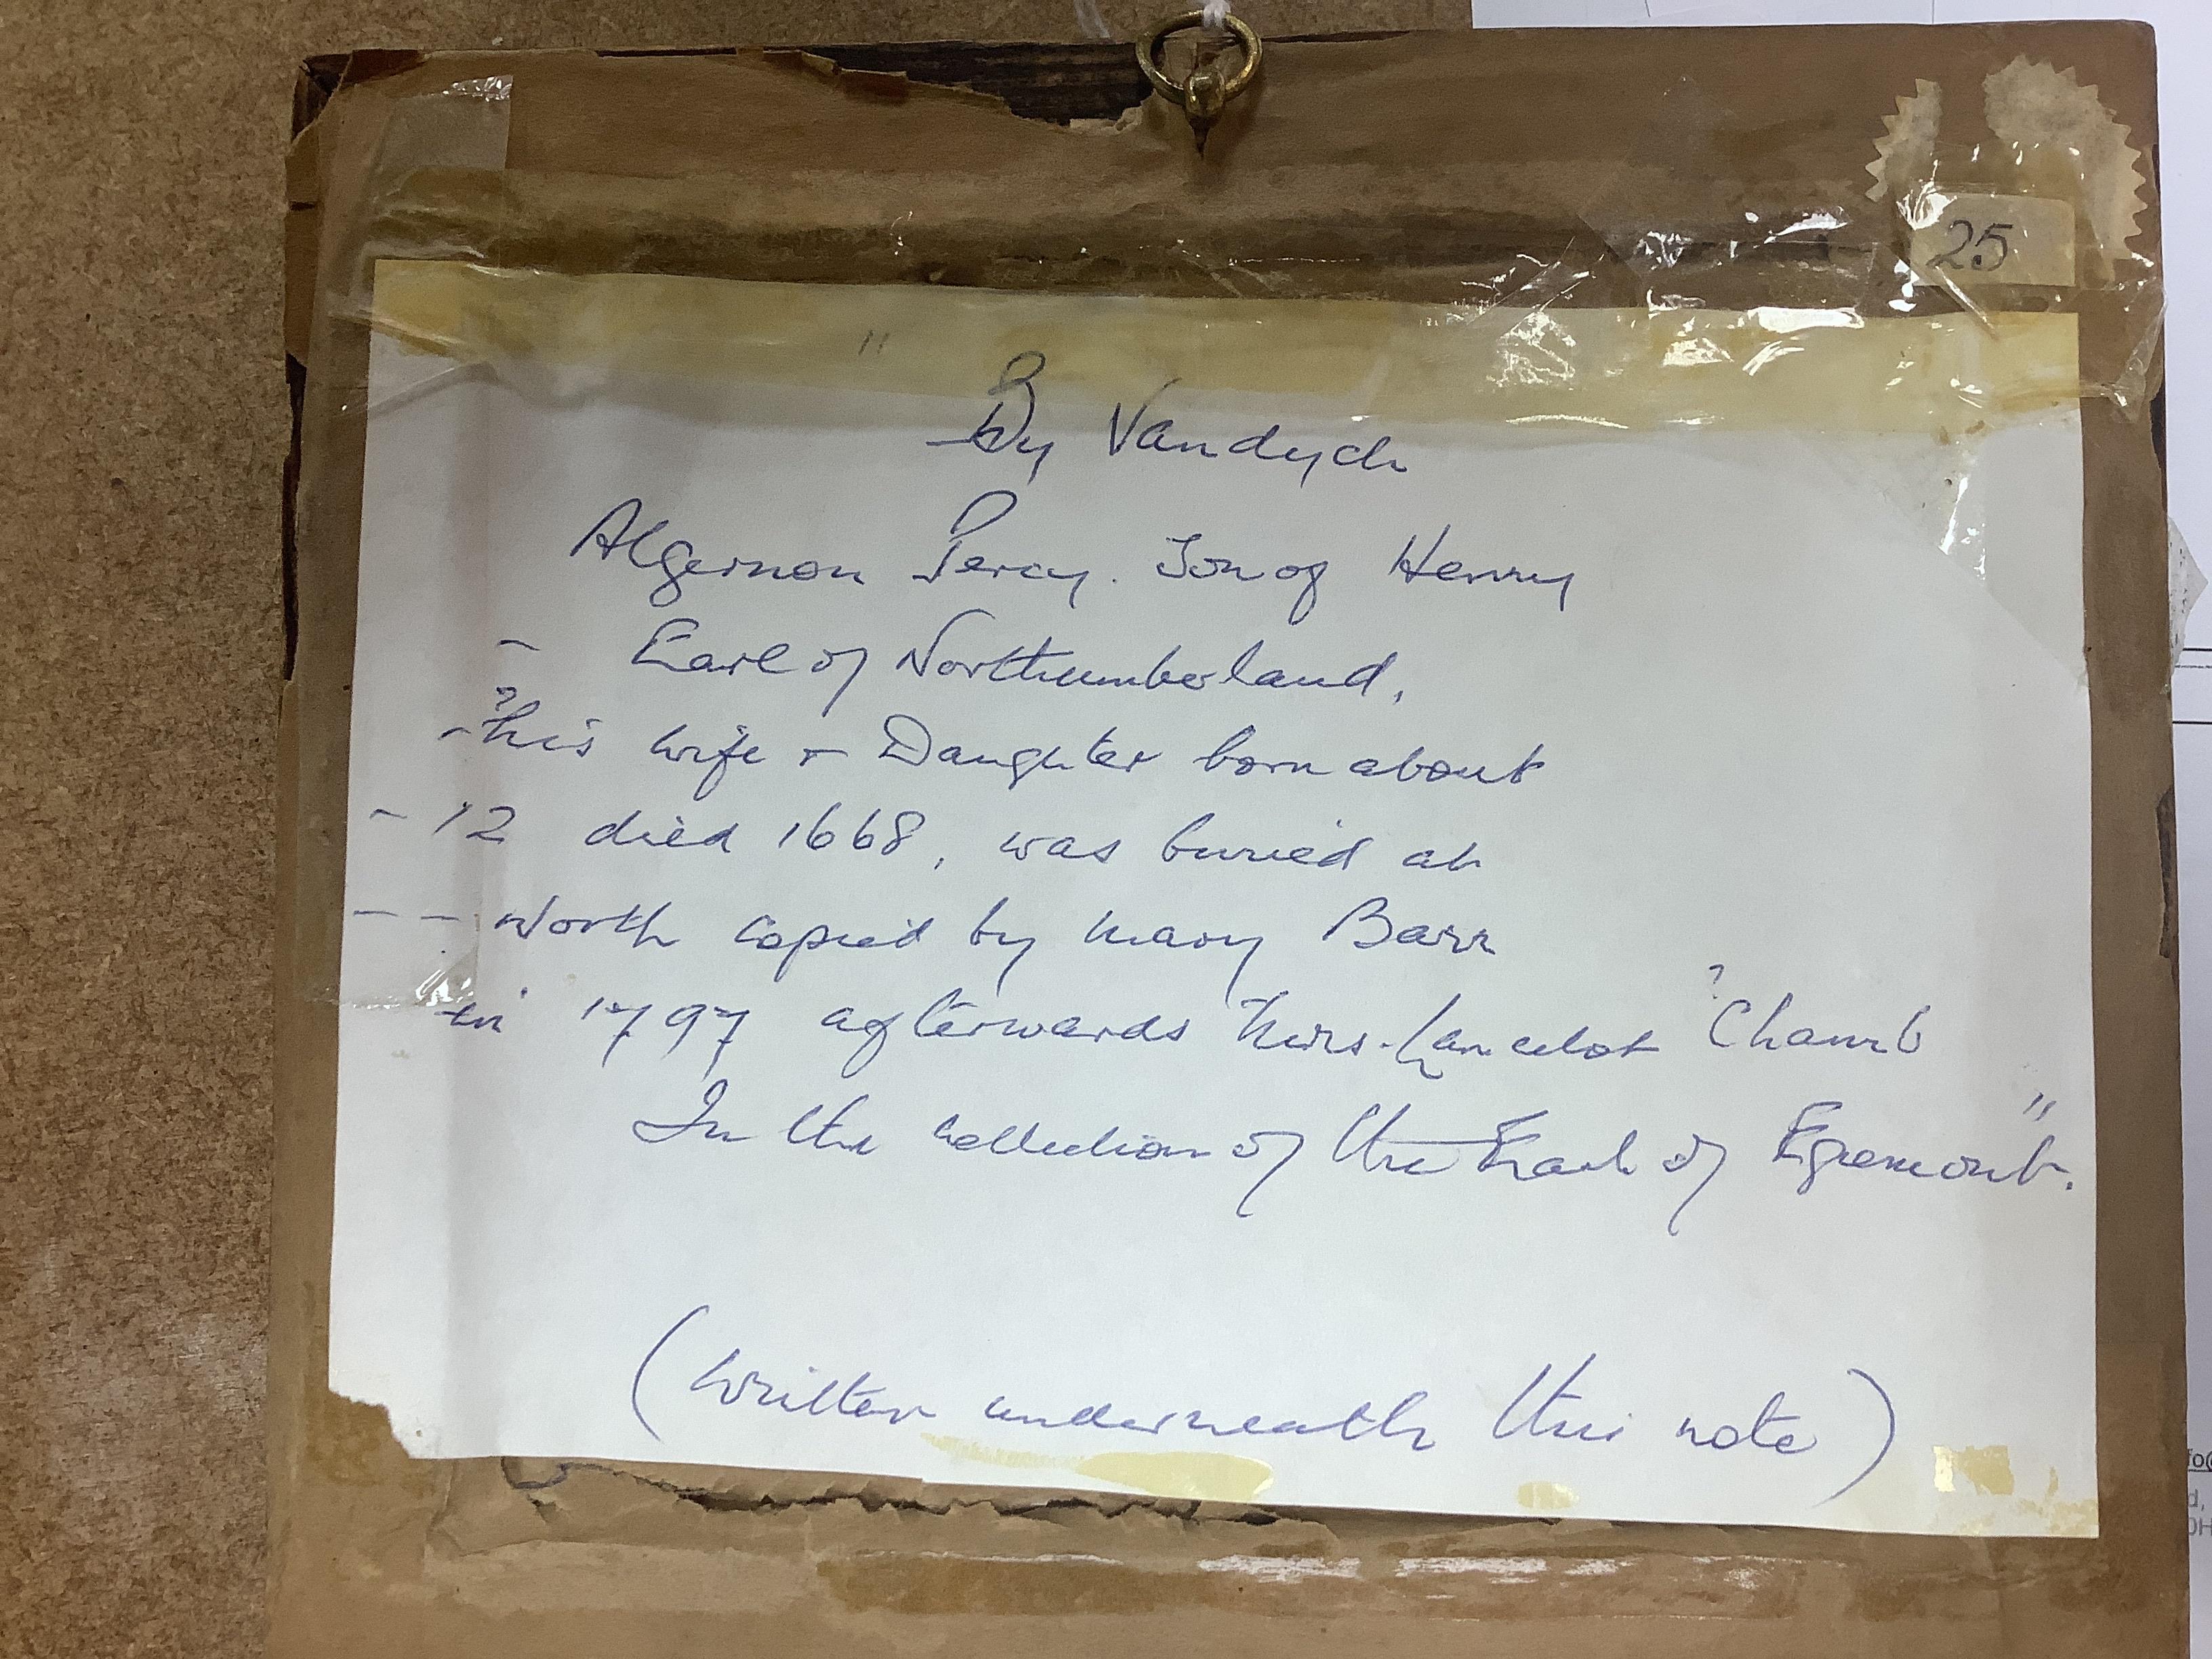 25
"
By Vandych
Algernon Percy. Son of Henry
- Earl of Northumberland,
?
- his wife + Daughter born about
- 12 died 1668, was buried at
- - worth copied by Mary Barr
in 1797 afterwards Mrs. Lancelot ? Chamb
In the collection of the Earl of Egremont. "
(written underneath this note)